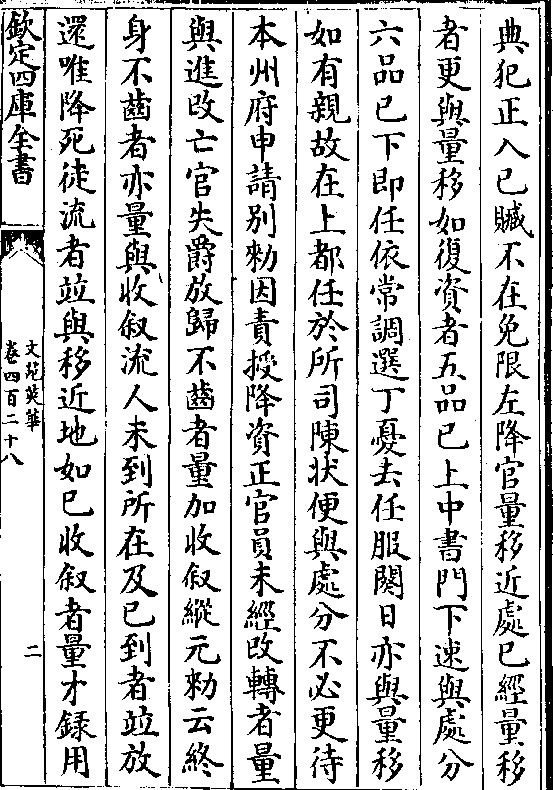 典犯正入已贓不在免限左降官量移近處已經量移
者更與量移如復資者五品已上中書門下速與處分
六品已下即任依常調選丁憂去任服闋日亦與量移
如有親故在上都任於所司陳状便與處分不必更待
本州府申請别勑因責授降資正官員未經改轉者量
與進改亡官失爵放歸不齒者量加收叙縱元勑云終
身不齒者亦量與收叙流人未到所在及已到者竝放
還唯降死徒流者竝與移近地如已收叙者量才錄用
欽定四庫全書
文苑英華
卷四百二十八
二